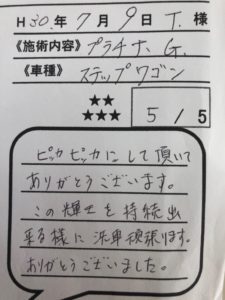 H30.年 7月 9日 T.様
《施術内容》プラチナ G.
《車種》ステップワゴン
★★
★★★ 5 / 5
ピッカピッカにして頂いて
ありがとうございます。
この輝きを持続出
来る様に洗車頑張ります。
ありがとうございました。